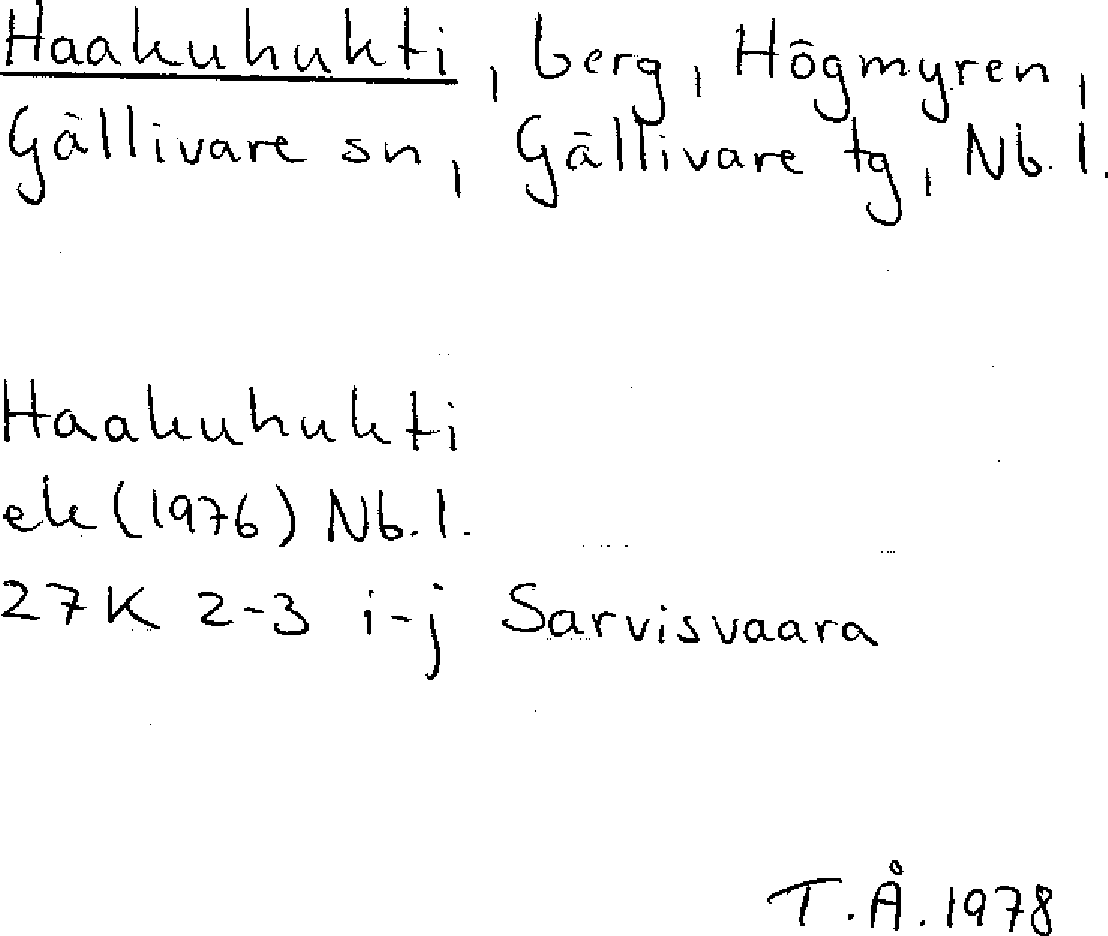 Haakuhukti, berg, Högmyren,
Gällivare sn, Gällivare tg, Nb. l.
Haakuhukti
ek (1976) Nb. l.
27K 2-3 i-j Sarvisvaara
T.Å. 1978